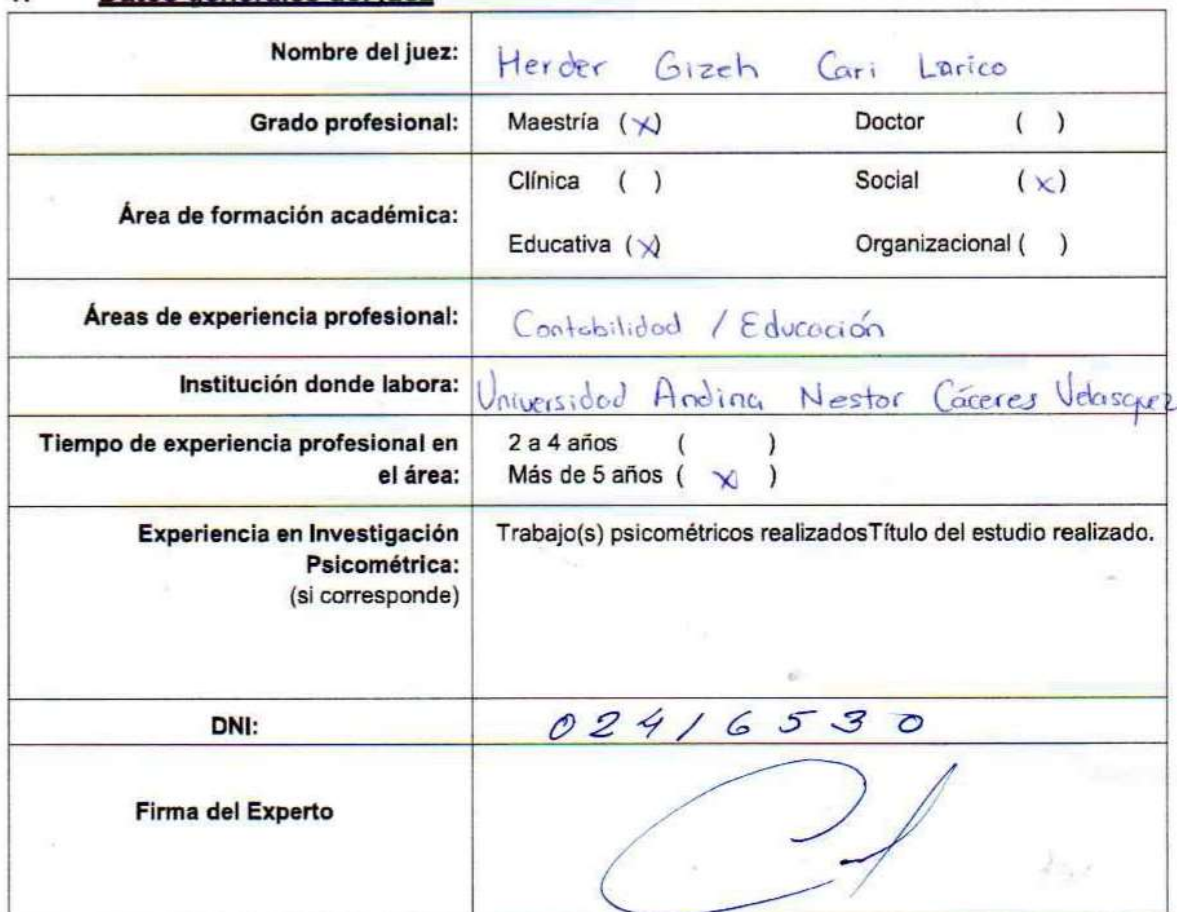 Nombre del juez: Herder Gizeh Cari Larico
Grado profesional: Maestría (x) Doctor ( )
Clínica ( ) Social (x)
Área de formación académica:
Educativa (x) Organizacional ( )
Áreas de experiencia profesional: Contabilidad / Educación
Institución donde labora: Universidad Andina Nestor Cáceres Velasquez
Tiempo de experiencia profesional en el área:
2 a 4 años ( )
Más de 5 años ( x )
Experiencia en Investigación
Psicométrica:
(si corresponde)
Trabajo(s) psicométricos realizadosTítulo del estudio realizado.
DNI: 02416530
Firma del Experto